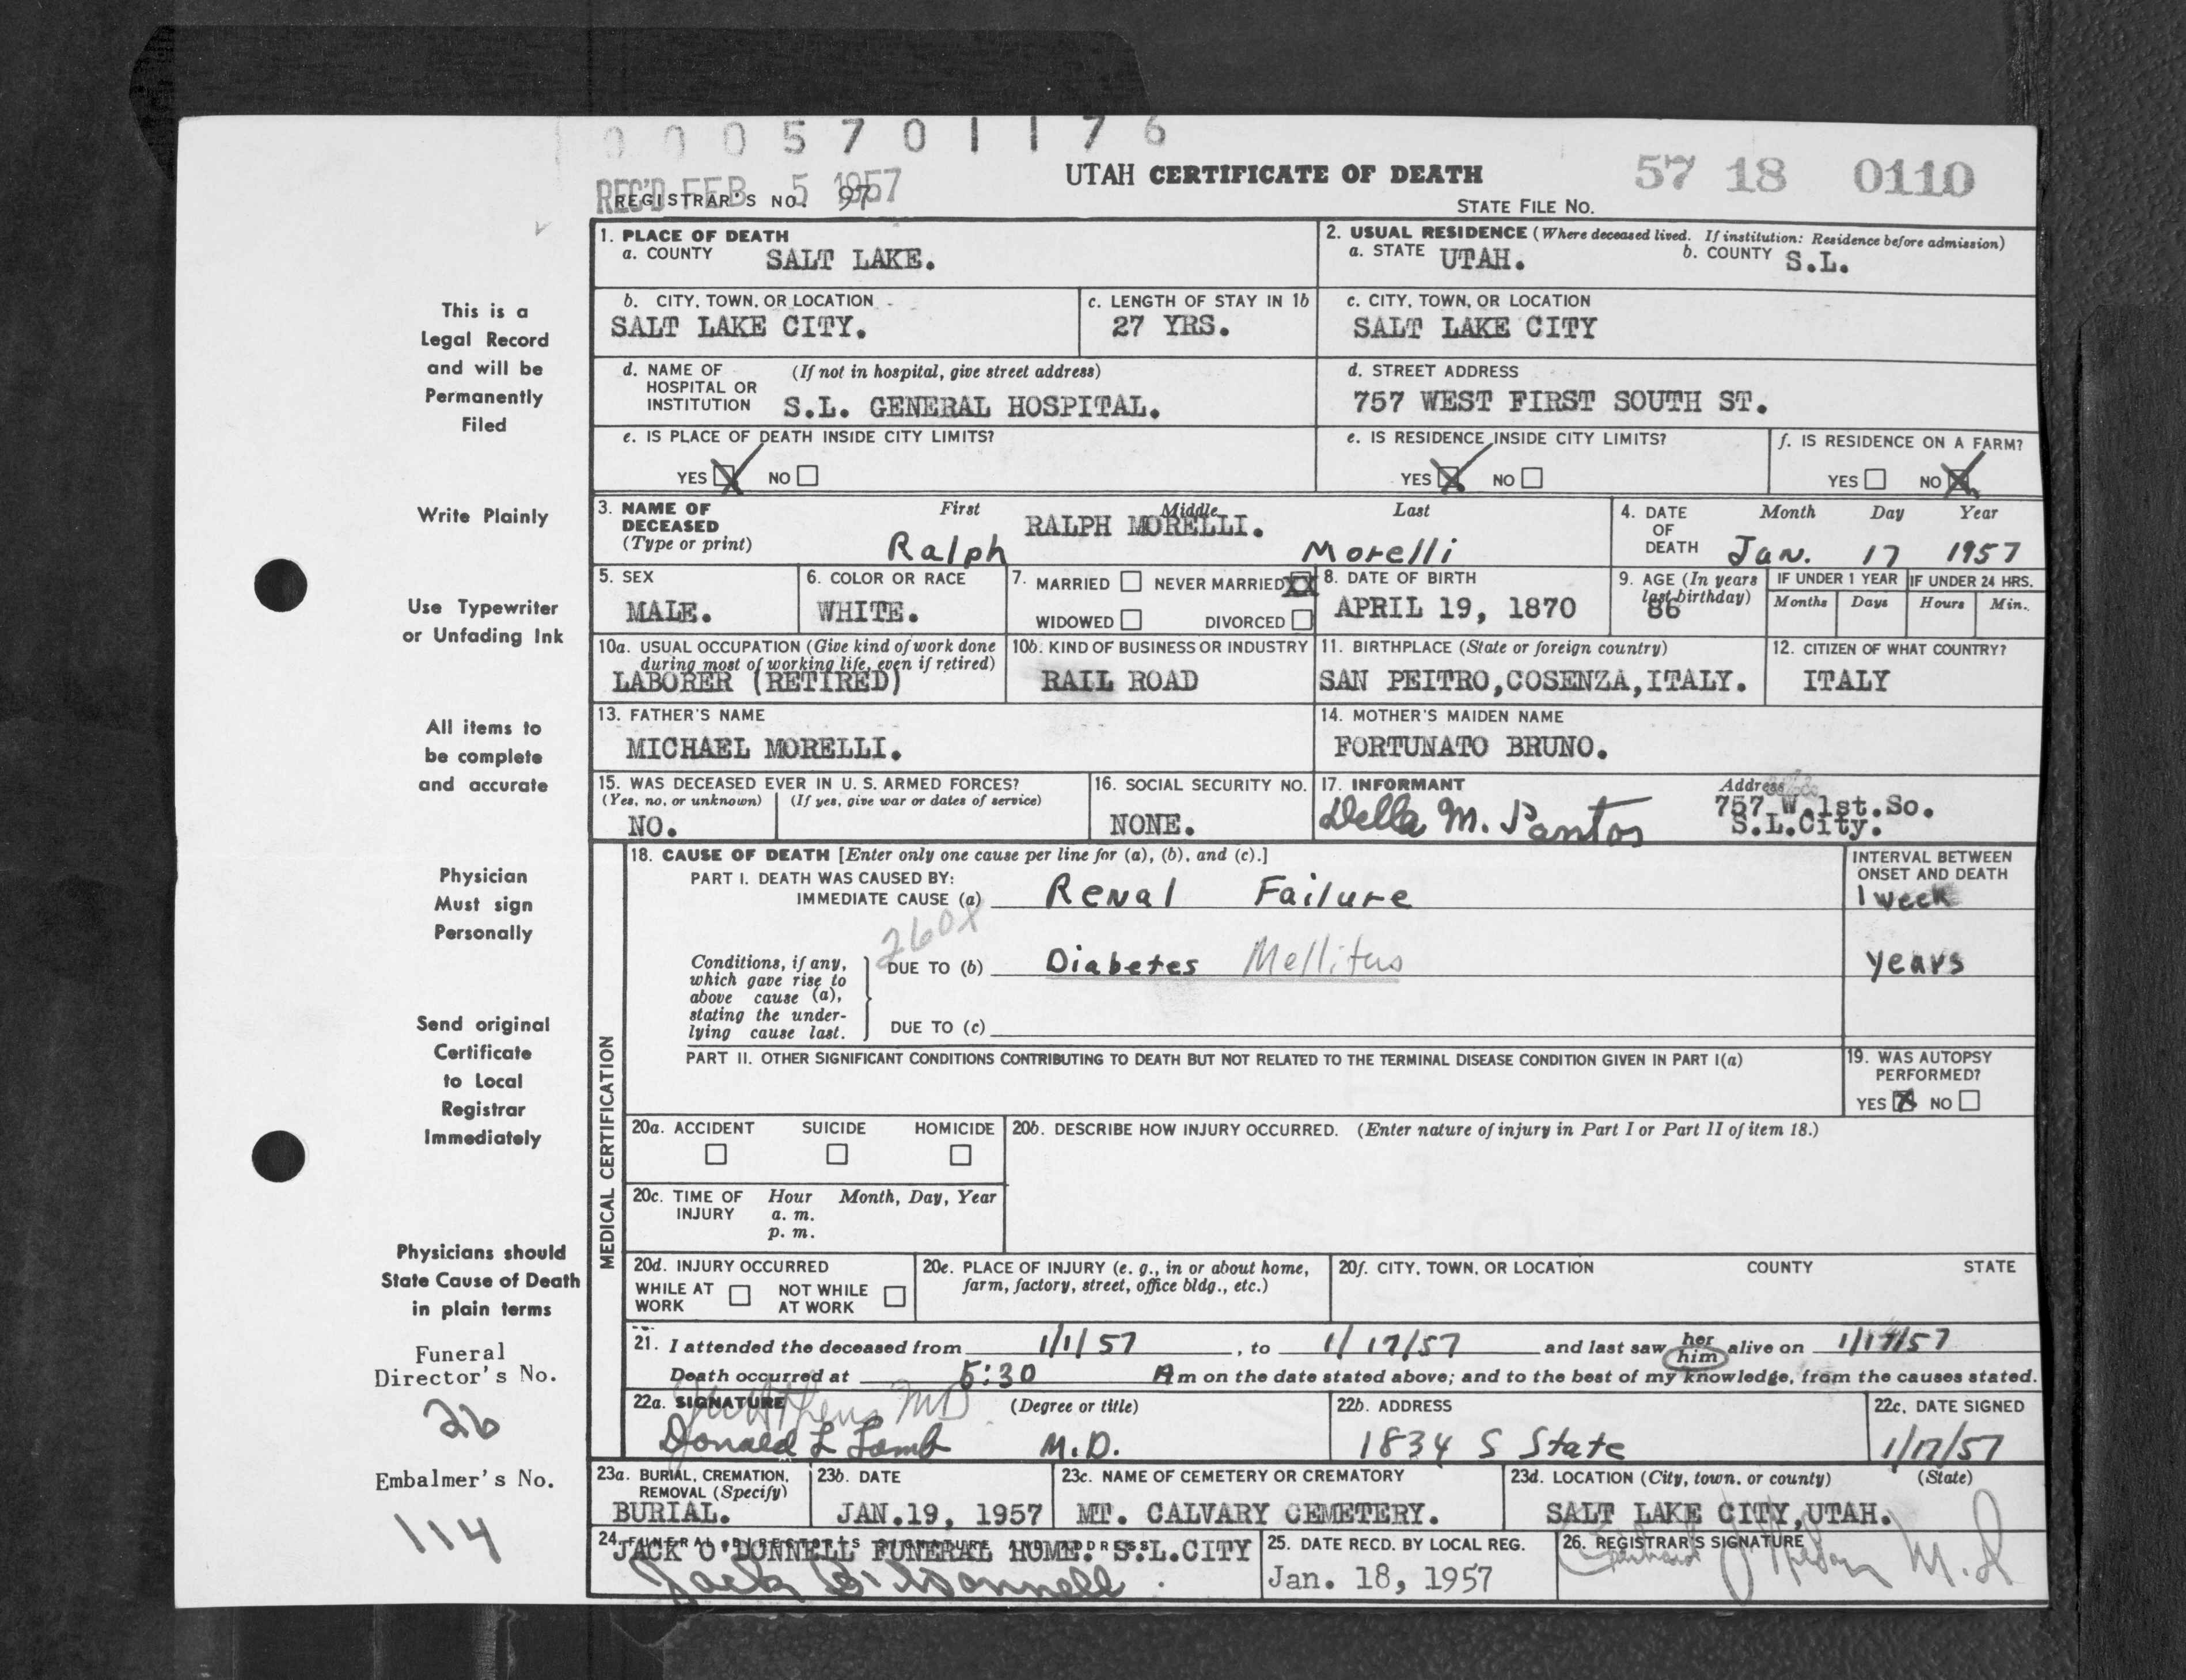 0 0 0 5 7 0 1 1 7 6
UTAH CERTIFICATE OF DEATH
57 18 0110
REC'D FEB 5 1957
REGISTRAR'S NO. 97
STATE FILE NO.
This is a
Legal Record
and will be
Permanently
Filed
Write Plainly
Use Typewriter
or Unfading Ink
All items to
be complete
and accurate
Physician
Must sign
Personally
Send original
Certificate
to Local
Registrar
Immediately
Physicians should
State Cause of Death
in plain terms
Funeral
Director's No.
26
Embalmer's No.
114
1. PLACE OF DEATH
a. COUNTY SALT LAKE.
2. USUAL RESIDENCE (Where deceased lived. If institution: Residence before admission)
a. STATE UTAH. b. COUNTY S.L.
b. CITY, TOWN, OR LOCATION
SALT LAKE CITY.
c. LENGTH OF STAY IN 1b
27 YRS.
c. CITY, TOWN, OR LOCATION
SALT LAKE CITY
d. NAME OF (If not in hospital, give street address)
HOSPITAL OR
INSTITUTION S.L. GENERAL HOSPITAL.
d. STREET ADDRESS
757 WEST FIRST SOUTH ST.
e. IS PLACE OF DEATH INSIDE CITY LIMITS?
YES NO
e. IS RESIDENCE INSIDE CITY LIMITS?
YES NO
f. IS RESIDENCE ON A FARM?
YES NO
3. NAME OF
DECEASED
(Type or print)
First Middle Last
RALPH MORELLI.
Ralph Morelli
4. DATE
OF
DEATH
Month Day Year
Jan. 17 1957
5. SEX
MALE.
6. COLOR OR RACE
WHITE.
7. MARRIED NEVER MARRIED XX
WIDOWED DIVORCED
8. DATE OF BIRTH
APRIL 19, 1870
9. AGE (In years
last birthday)
86
IF UNDER 1 YEAR IF UNDER 24 HRS.
Months Days Hours Min.
10a. USUAL OCCUPATION (Give kind of work done
during most of working life, even if retired)
LABORER (RETIRED)
10b. KIND OF BUSINESS OR INDUSTRY
RAIL ROAD
11. BIRTHPLACE (State or foreign country)
SAN PEITRO, COSENZA, ITALY.
12. CITIZEN OF WHAT COUNTRY?
ITALY
13. FATHER'S NAME
MICHAEL MORELLI.
14. MOTHER'S MAIDEN NAME
FORTUNATO BRUNO.
15. WAS DECEASED EVER IN U. S. ARMED FORCES?
(Yes, no, or unknown) (If yes, give war or dates of service)
NO.
16. SOCIAL SECURITY NO.
NONE.
17. INFORMANT Address
Della M. Pantos
757 W. 1st. So.
S.L.City.
MEDICAL CERTIFICATION
18. CAUSE OF DEATH [Enter only one cause per line for (a), (b), and (c).]
PART I. DEATH WAS CAUSED BY:
IMMEDIATE CAUSE (a) Renal Failure
INTERVAL BETWEEN
ONSET AND DEATH
1 week
260X
Conditions, if any,
which gave rise to
above cause (a),
stating the under-
lying cause last.
DUE TO (b) Diabetes Mellitus
years
DUE TO (c)
PART II. OTHER SIGNIFICANT CONDITIONS CONTRIBUTING TO DEATH BUT NOT RELATED TO THE TERMINAL DISEASE CONDITION GIVEN IN PART I(a)
19. WAS AUTOPSY
PERFORMED?
YES NO
20a. ACCIDENT SUICIDE HOMICIDE
20b. DESCRIBE HOW INJURY OCCURRED. (Enter nature of injury in Part I or Part II of item 18.)
20c. TIME OF Hour Month, Day, Year
INJURY a. m.
p. m.
20d. INJURY OCCURRED
WHILE AT NOT WHILE
WORK AT WORK
20e. PLACE OF INJURY (e. g., in or about home,
farm, factory, street, office bldg., etc.)
20f. CITY, TOWN, OR LOCATION COUNTY STATE
21. I attended the deceased from 1/1/57, to 1/17/57 and last saw her him alive on 1/17/57
Death occurred at 5:30 A m on the date stated above; and to the best of my knowledge, from the causes stated.
22a. SIGNATURE MD (Degree or title)
Donald L Lamb M.D.
22b. ADDRESS
1834 S State
22c. DATE SIGNED
1/17/57
23a. BURIAL, CREMATION,
REMOVAL (Specify)
BURIAL.
23b. DATE
JAN.19, 1957
23c. NAME OF CEMETERY OR CREMATORY
MT. CALVARY CEMETERY.
23d. LOCATION (City, town, or county) (State)
SALT LAKE CITY, UTAH.
24. FUNERAL DIRECTOR'S SIGNATURE AND ADDRESS
JACK O'DONNELL FUNERAL HOME. S.L.CITY
25. DATE RECD. BY LOCAL REG.
Jan. 18, 1957
26. REGISTRAR'S SIGNATURE
M.D